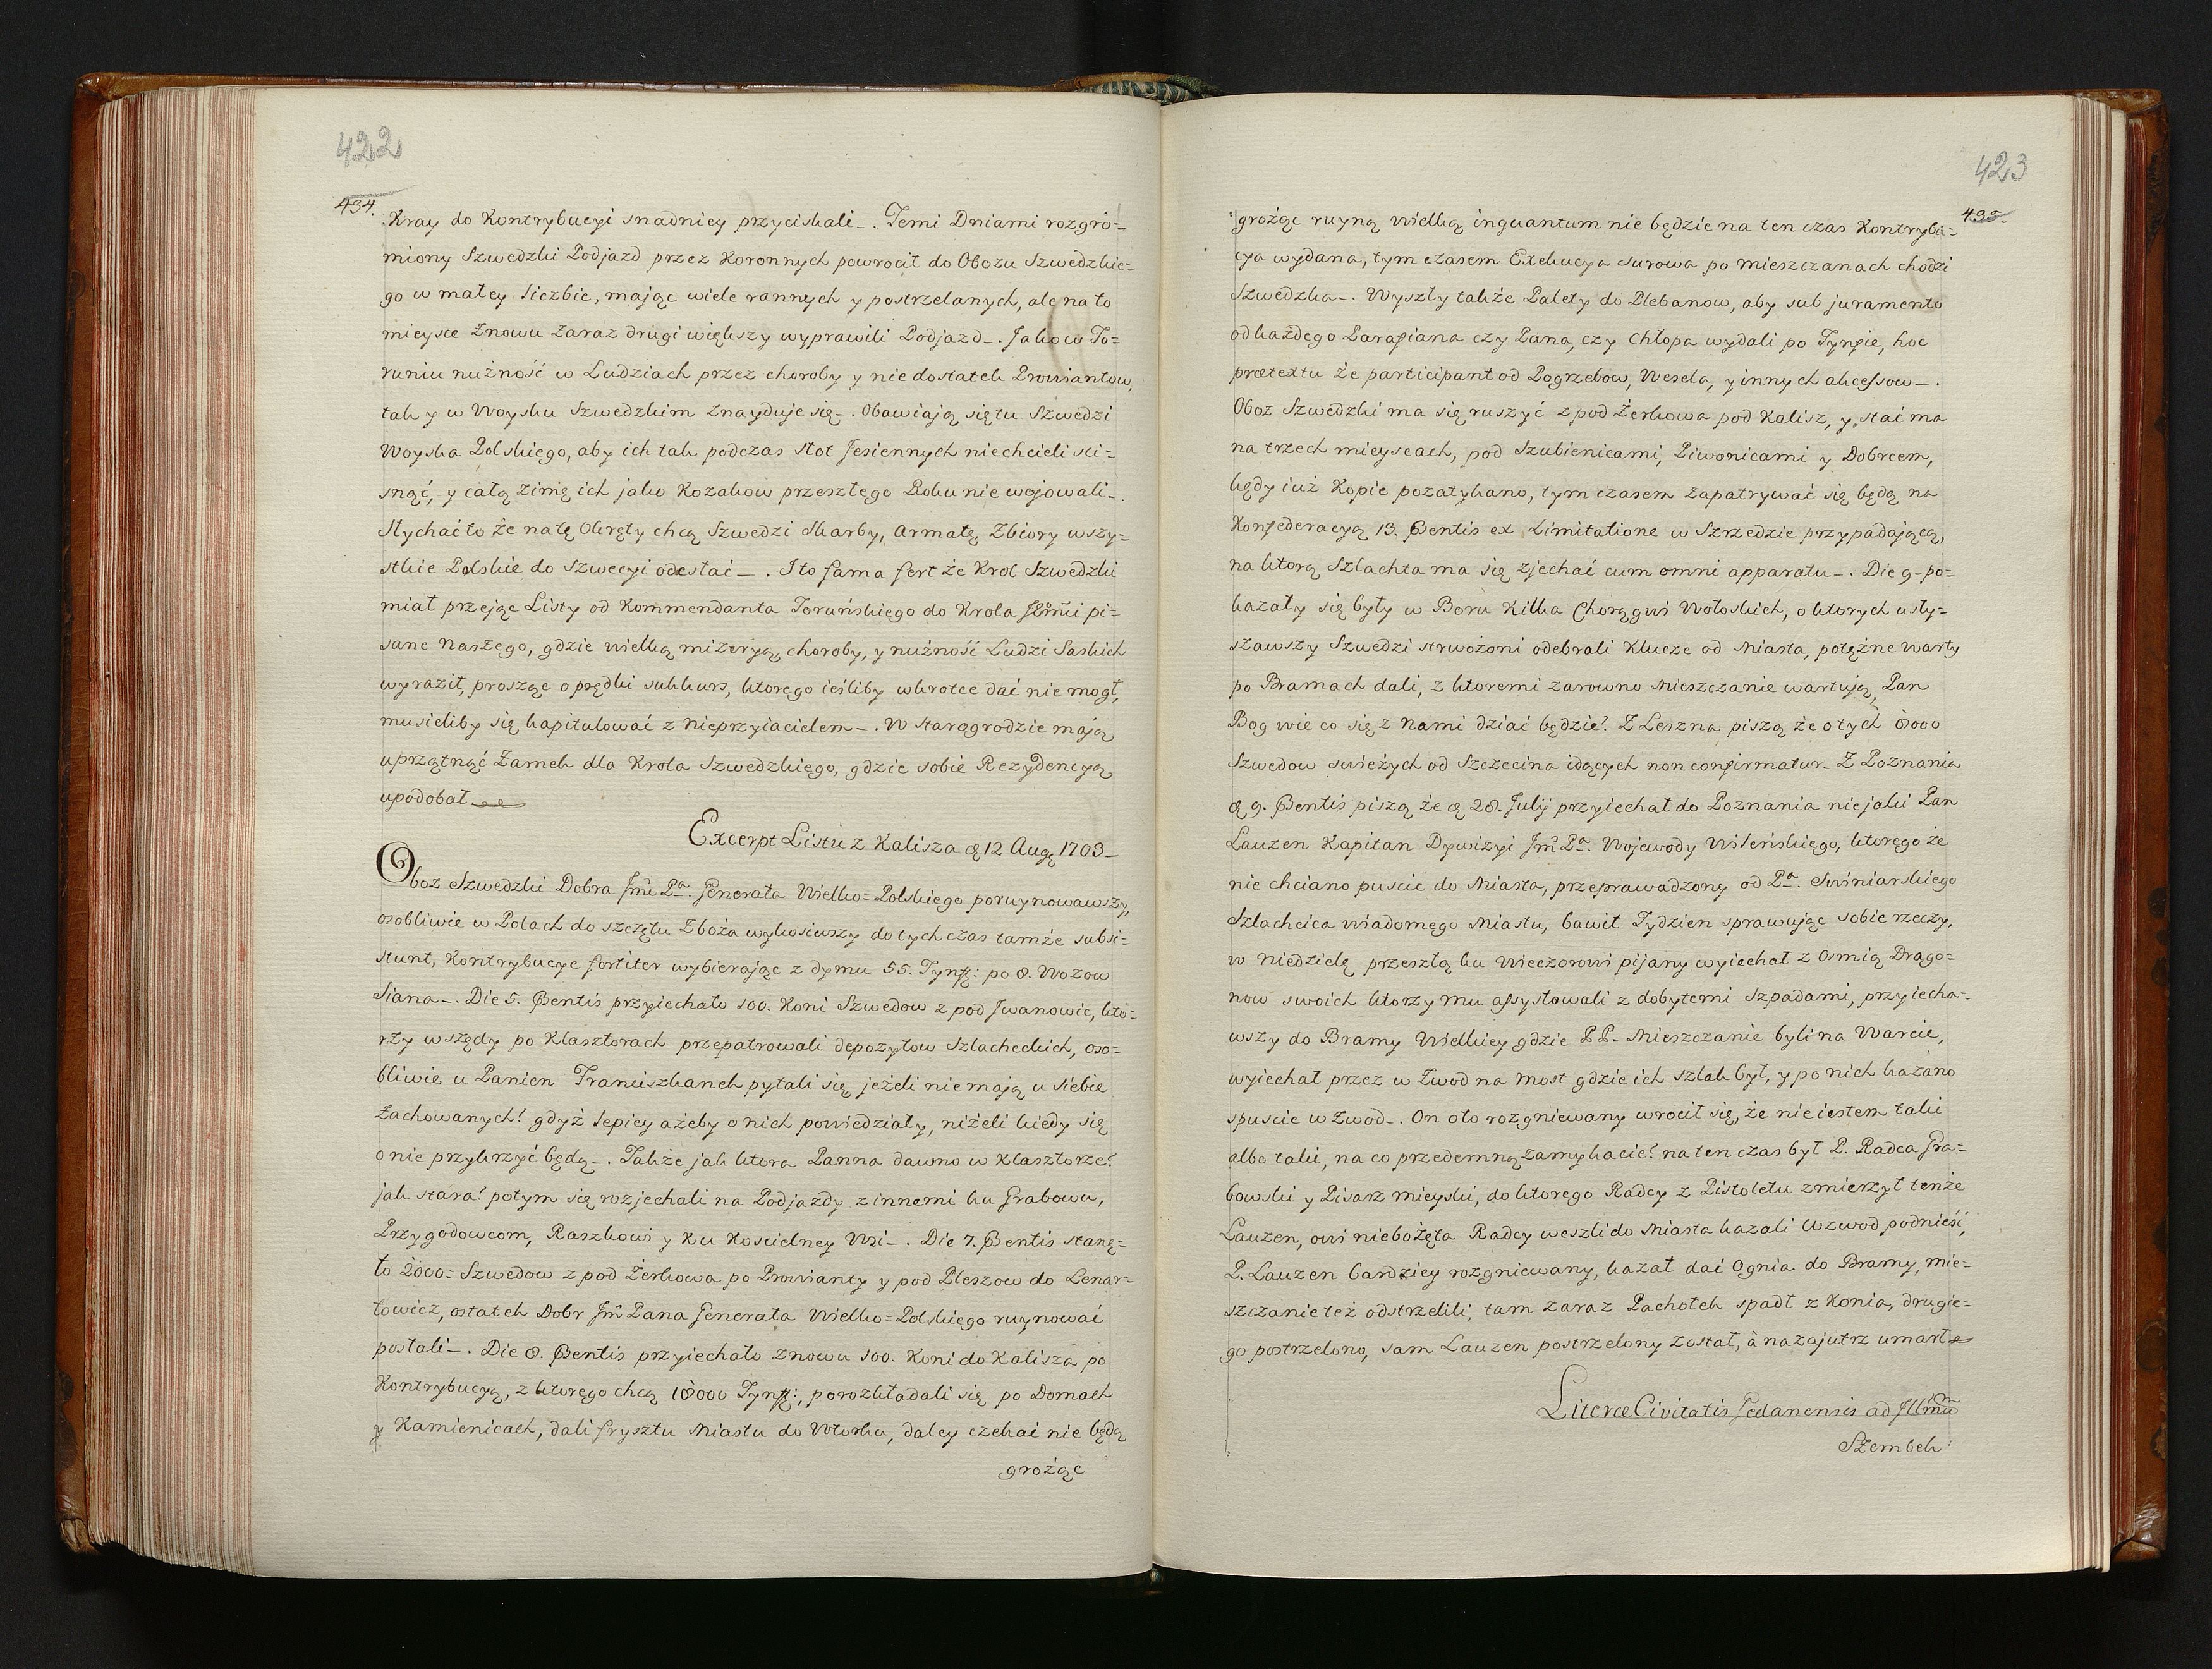 422
434.
Kray do Kontrybucyi snadniey przyciskali_. Temi Dniami rozgro=
miony Szwedzki Podjazd przez Koronnych powrocił do Obozu Szwedzkie=
go w małey liczbie, mając wiele rannych y postrzelanych, ale na to
mieysce znowu zaraz drugi większy wyprawili Podjazd_. Jako w To=
runiu nużność w Ludziach przez choroby y niedostatek Prowiantow,
tak y w Woysku Szwedzkim znayduje się_. Obawiają się tu Szwedzi
Woyska Polskiego, aby ich tak podczas Słot Jesiennych niechcieli sci=
snąć, y całą zimę ich jako Kozakow przeszłego Roku nie wojowali_.
Słychać to że na tę Okręty chcą Szwedzi Skarby, Armatę, Zbiory wszy=
stkie Polskie do Szwecyi odesłać_. I to fama fert że Krol Szwedzki
miał przejąc Listy od Kommendanta Toruńskiego do Krola Jmci pi=
sane Naszego, gdzie wielką mizeryą, choroby, y nużność Ludzi Saskich
wyraził, prosząc o prędki sukkurs, ktorego ieśliby wkrotce dać nie mogł,
musieliby się kapitulować z Nieprzyiacielem_. W Starogrodzie mają
uprzątnąć Zamek dla Krola Szwedzkiego, gdzie sobie Rezydencyą
upodobał
Excerpt Listu z Kalisza d 12 Aug 1703_
Oboz Szwedzki Dobra Jmci Pa. Generała Wielko=Polskiego porujnowawszy,
osobliwie w Polach do szczętu Zboża wykosiwszy do tych czas tamże subsi=
stunt, Kontrybucye fortiter wybierając z dymu 55. Tynff: po 8. Wozow
Siana_. Die 5. Præsentis przyiechało 100. Koni Szwedow z pod Jwanowic, kto=
rzy wszędy po Klasztorach przepatrowali depozytow Szlacheckich, oso=
bliwie u Panien Franciszkanek pytali się jeżeli nie mają u siebie
Zachowanych? gdyż lepiey ażeby o nich powiedziały, niżeli kiedy się
o nie przykrzyć będą_. Także jak ktora Panna dawno w Klasztorze?
jak stara? potym się rozjechali na Podjazdy z innemi ku Grabowu,
Przygodowcom, Raszkowi y Ku Koscielney Wsi_. Die 7. Præsentis stanę=
ło 2000= Szwedow z pod Żerkowa po Prowianty y pod Pleszow do Lenar=
towicz, ostatek Dobr Jm Pana Generała Wielko=Polskiego ruynować
posłali_. Die 8. Præsentis przyiechało znowu 100. Koni do Kalisza po
Kontrybucyą, z ktorego chcą 18000 Tynff:, porozkładali się po Domach
y Kamienicach, dali frysztu Miastu do Wtorku, daley czekać nie będą
grożąc
423
435.
grożąc ruyną wielką inquantum nie będzie na ten czas Kontrybu=
cya wydana, tym czasem Exekucya surowa po mieszczanach chodzi
Szwedzka_. Wyszły także Palety do Plebanow, aby sub juramento
od każdego Parafiana czy Pana, czy Chłopa wydali po Tynfie, hoc
prætextu że participant od Pogrzebow, Wesela, y innych akcessow_.
Oboz Szwedzki ma się ruszyć z pod Żerkowa pod Kalisz, y stać ma
na trzech mieyscach, pod Szubienicami, Piwonicami y Dobrcem,
kędy iuż Kopie pozatykano, tym czasem zapatrywać się będą na
Konfederacyą 13. Præsentis ex Limitatione w Szrzedzie przypadającą,
na ktorą Szlachta ma się zjechać cum omni apparatu_. Die 9= po=
kazały się były w Boru Kilka Chorągwi Wołoskich, o ktorych usły=
szawszy Szwedzi strwożoni odebrali Klucze od Miasta, potężne warty
po Bramach dali, z ktoremi zarowno Mieszczanie wartują, Pan
Bog wie co się z Nami dziać będzie? Z Leszna piszą że o tych 8000
Szwedow swieżych od Szczecina idących non confirmatur_ Z Poznania
d 9. Præsentis piszą że d 28. Julij przyiechał do Poznania niejaki Pan
Lauzen Kapitan Dywizyi Jm Pa. Wojewody Wileńskiego, ktorego że
nie chciano puscic do Miasta, przeprawadzony od Pa. Swiniarskiego
Szlachcica wiadomego Miastu, bawił Tydzien sprawując sobie rzeczy,
w Niedzielę przeszłą ku Wieczorowi pijany wyiechał z Osmią Drago=
now swoich ktorzy mu assystowali z dobytemi Szpadami, przyiecha=
wszy do Bramy Wielkiey gdzie PP. Mieszczanie byli na Warcie,
wyiechał przez wZwod na most gdzie ich szlak był, y po nich kazano
spuscic wZwod_. On oto rozgniewany wrocił się, że nie iestem taki
albo taki, na co przedemną zamykacie? na ten czas był P. Radca Gra=
bowski y Pisarz mieyski, do ktorego Radcy z Pistoletu zmierzył tenże
Lauzen, owi niebożęta Radcy weszli do Miasta kazali Wzwod podnieść,
P. Lauzen bardziey rozgniewany, kazał dać Ognia do Bramy, mie=
szczanie też odstrzelili, tam zaraz Pachołek spadł z Konia, drugie=
go postrzelono, sam Lauzen postrzelony został, à nazajutrz umarł
Literæ Civitatis Gedanensis ad Illmu
Szembek